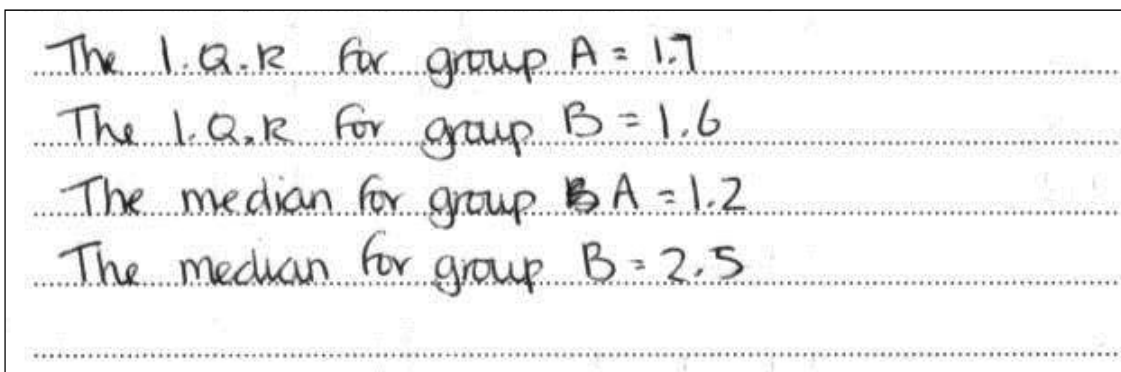 The I.Q.R for group A = 1.7
The I.Q.R for group B = 1.6
The median for group A = 1.2
The median for group B = 2.5